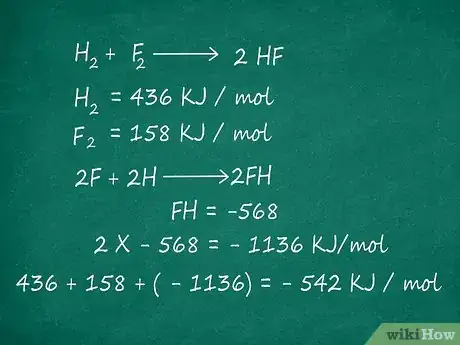 H₂ + F₂ ⟶ 2 HF
H₂ = 436 KJ / mol
F₂ = 158 KJ / mol
2F + 2H ⟶ 2FH
FH = -568
2 X - 568 = - 1136 KJ/mol
436 + 158 + ( - 1136) = - 542 KJ / mol
wikiHow